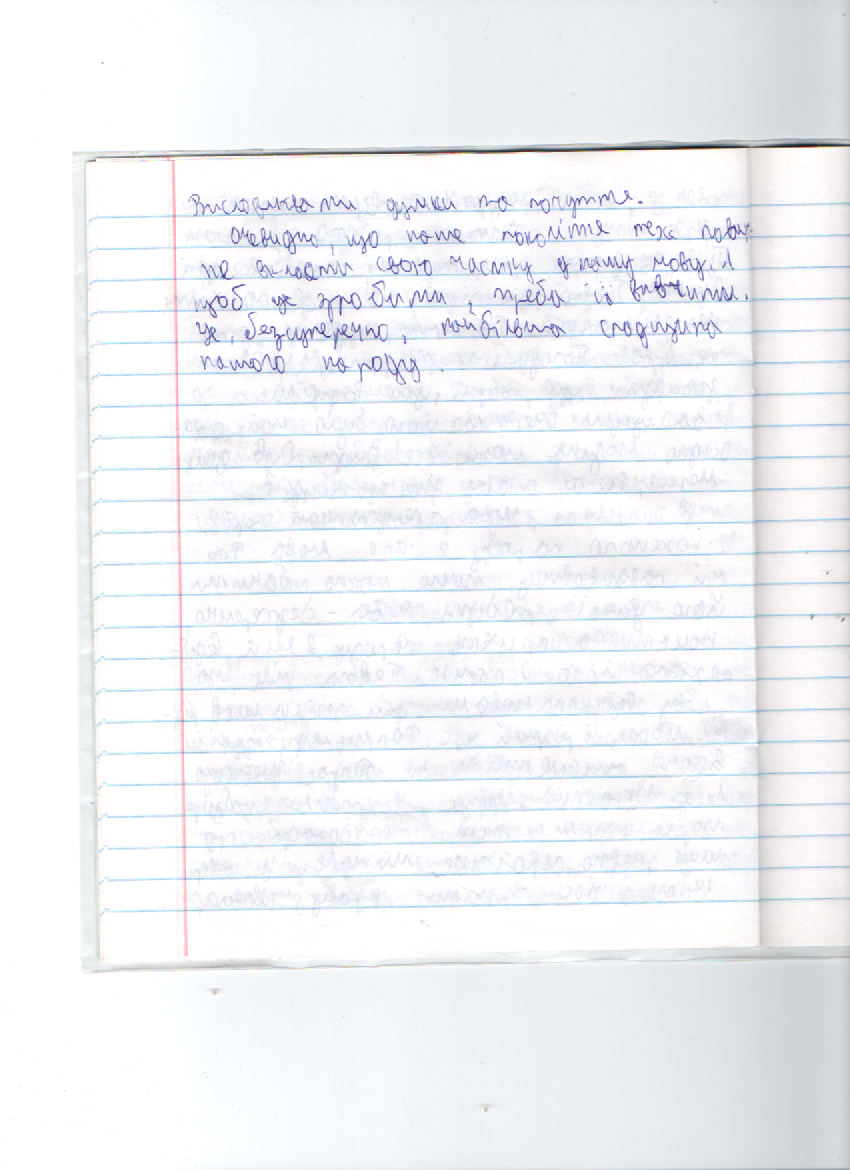 Висловлювати думки та почуття.
Очевидно, що наше покоління теж повин-
не вкласти свою частку у нашу мову. А
щоб це зробити, треба її вивчити.
Це, безсуперечно, найбільша спадщина
нашого народу.